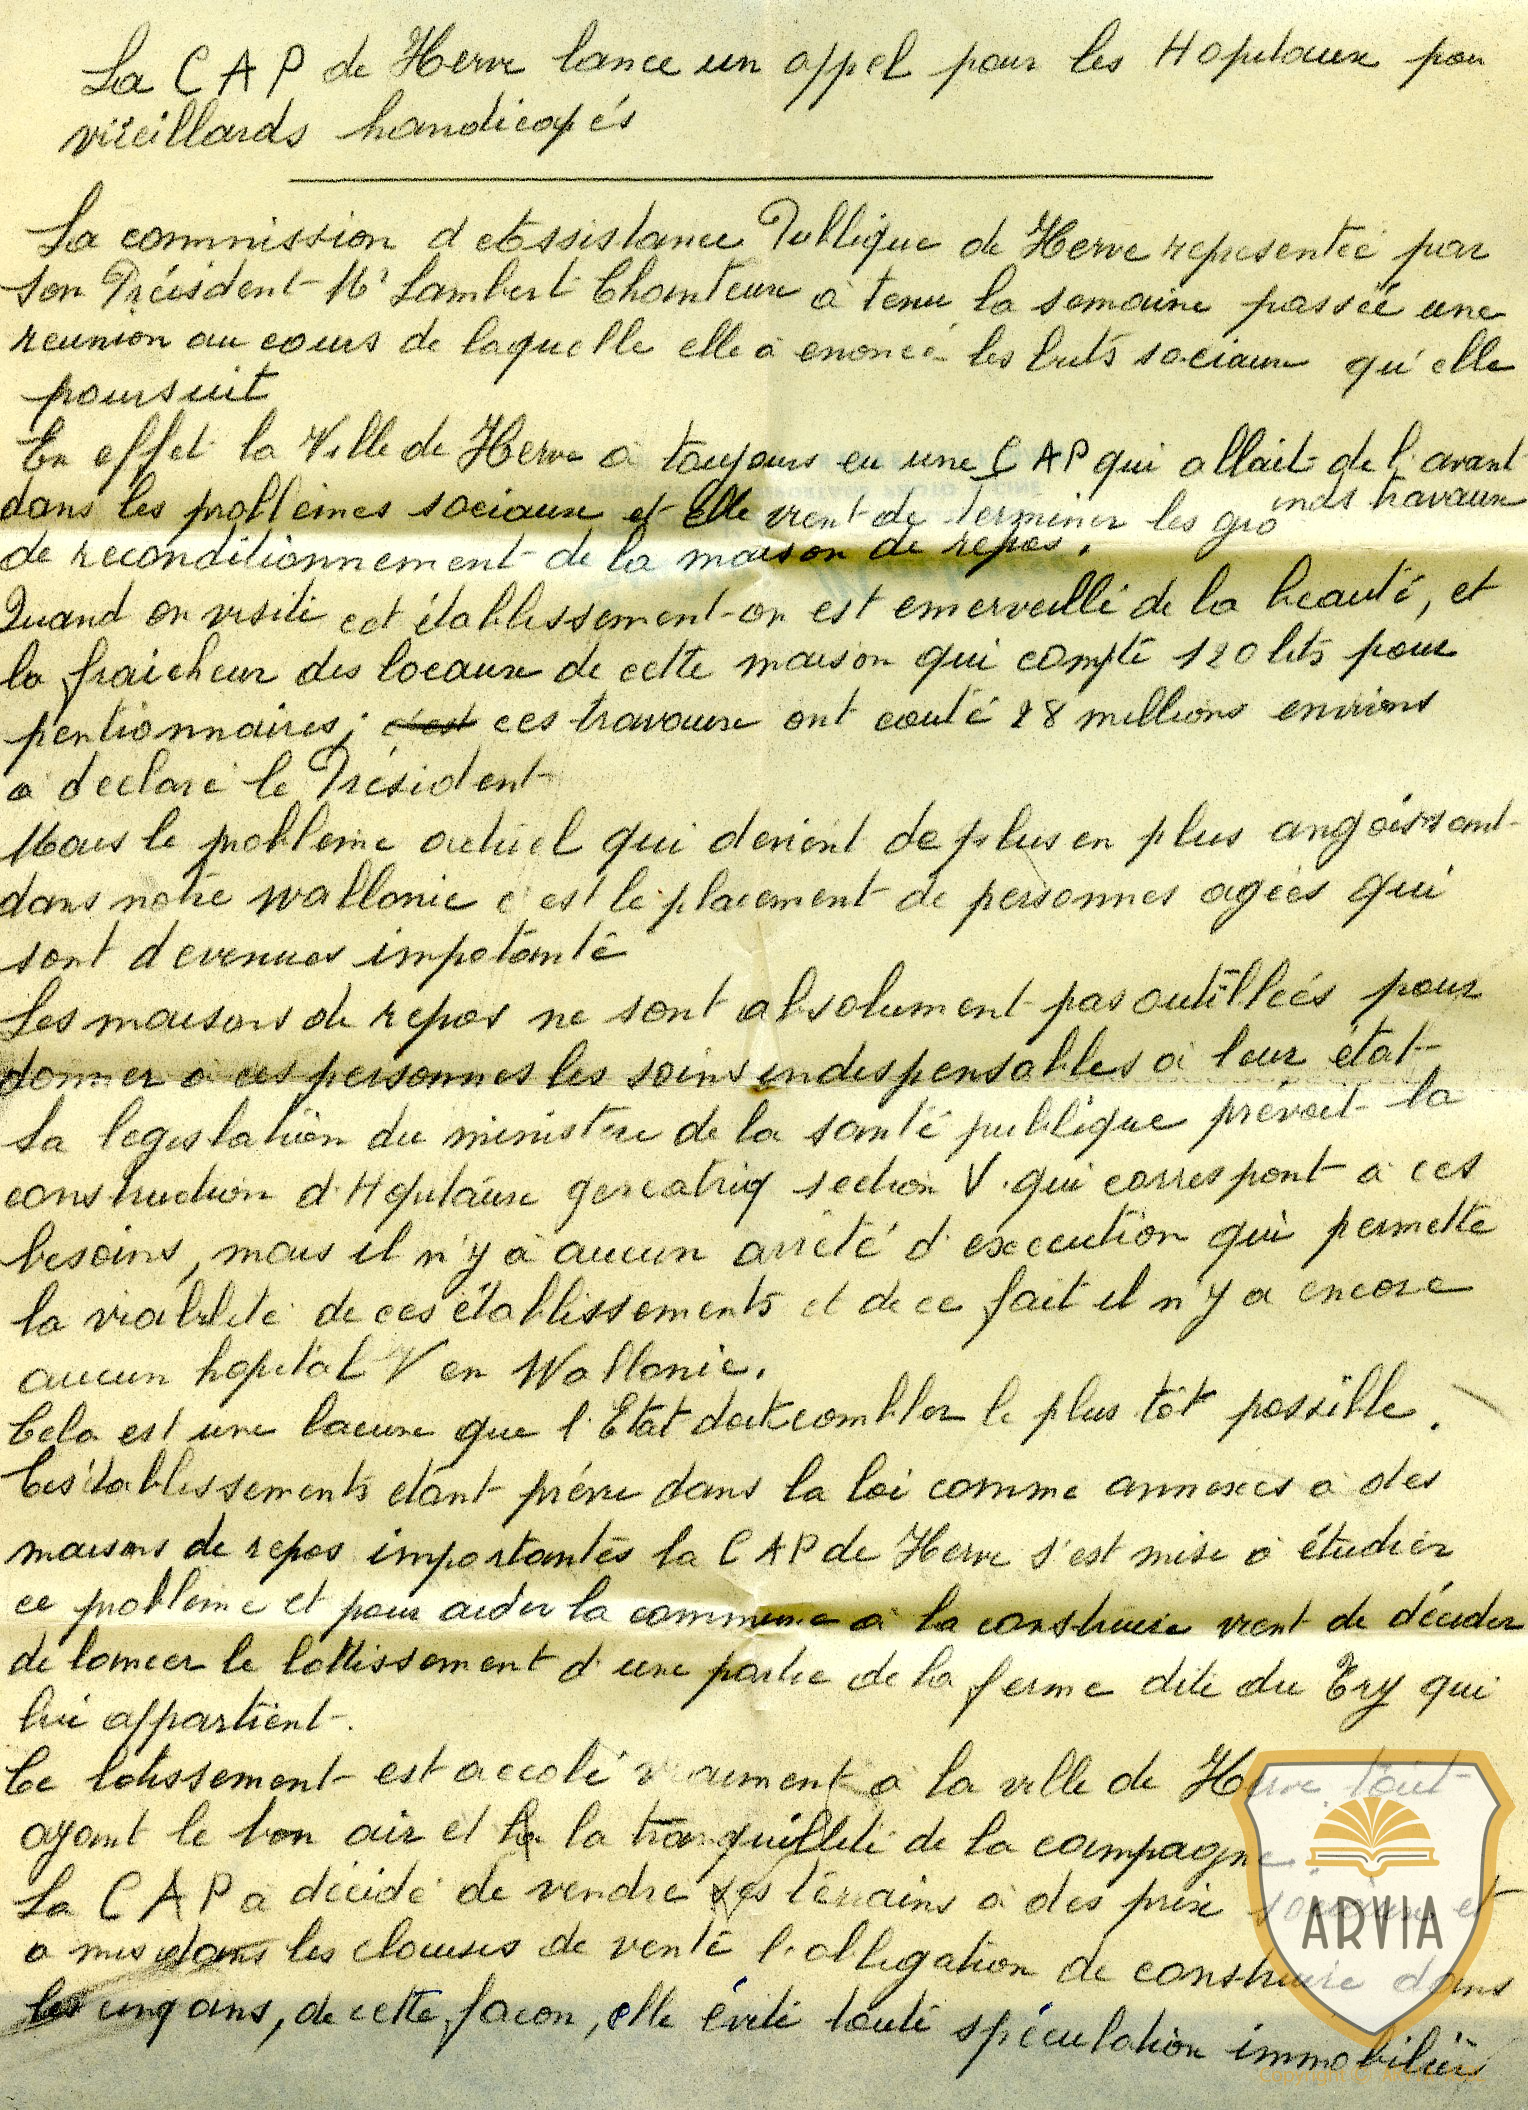 La CAP de Herve lance un appel pour les Hopitaux pour
vieillards handicapés
La commission d'Assistance Publique de Herve representée par
son Président Mr Lambert Chanteux à tenu la semaine passée une
reunion au cours de laquelle elle à enoncé les buts sociaux qu'elle
poursuit
En effet la Ville de Herve à toujours eu une CAP qui allait de l'avant
dans les problèmes sociaux et Elle vient de terminer les grands travaux
de reconditionnement de la maison de repos.
Quand on visite cet établissement on est emerveillé de la beauté, et
la fraicheur des locaux de cette maison qui compte 120 lits pour
pentionnaires; c'est ces travaux ont couté 28 millions environs
a declaré le Président
Mais le probleme actuel qui devient de plus en plus angoissant
dans notre Wallonie c'est le placement de personnes agées qui
sont devenues impotante
Les maisons de repos ne sont absolument pas outillées pour
donner à ces personnes les soins indispensables à leur état
La legislation du ministere de la santé publique prévoit la
construction d'Hopitaux geriatriq section V qui correspont à ces
besoins, mais il n'y à aucun arrêté d'execution qui permette
la viabilité de ces établissements et de ce fait il n'y a encore
aucun hopital V en Wallonie.
Cela est une lacune que l'Etat doit combler le plus tôt possible.
Ces établissements etant prévu dans la loi comme annexes à des
maisons de repos importantes la CAP de Herve s'est mise à étudier
ce probleme et pour aider la commune à la construire vient de décider
de lancer le lottissement d'une partie de la ferme dite du Try qui
lui appartient.
Ce lotissement est accolé vraiment à la ville de Herve, tout
ayant le bon air et la la tranquillité de la campagne.
La CAP a décidé de vendre ses terrains à des prix sociaux et
a mis dans les clauses de vente l'obligation de construire dans
les cinq ans, de cette facon, elle évite toute spéculation immobilière
ARVIA